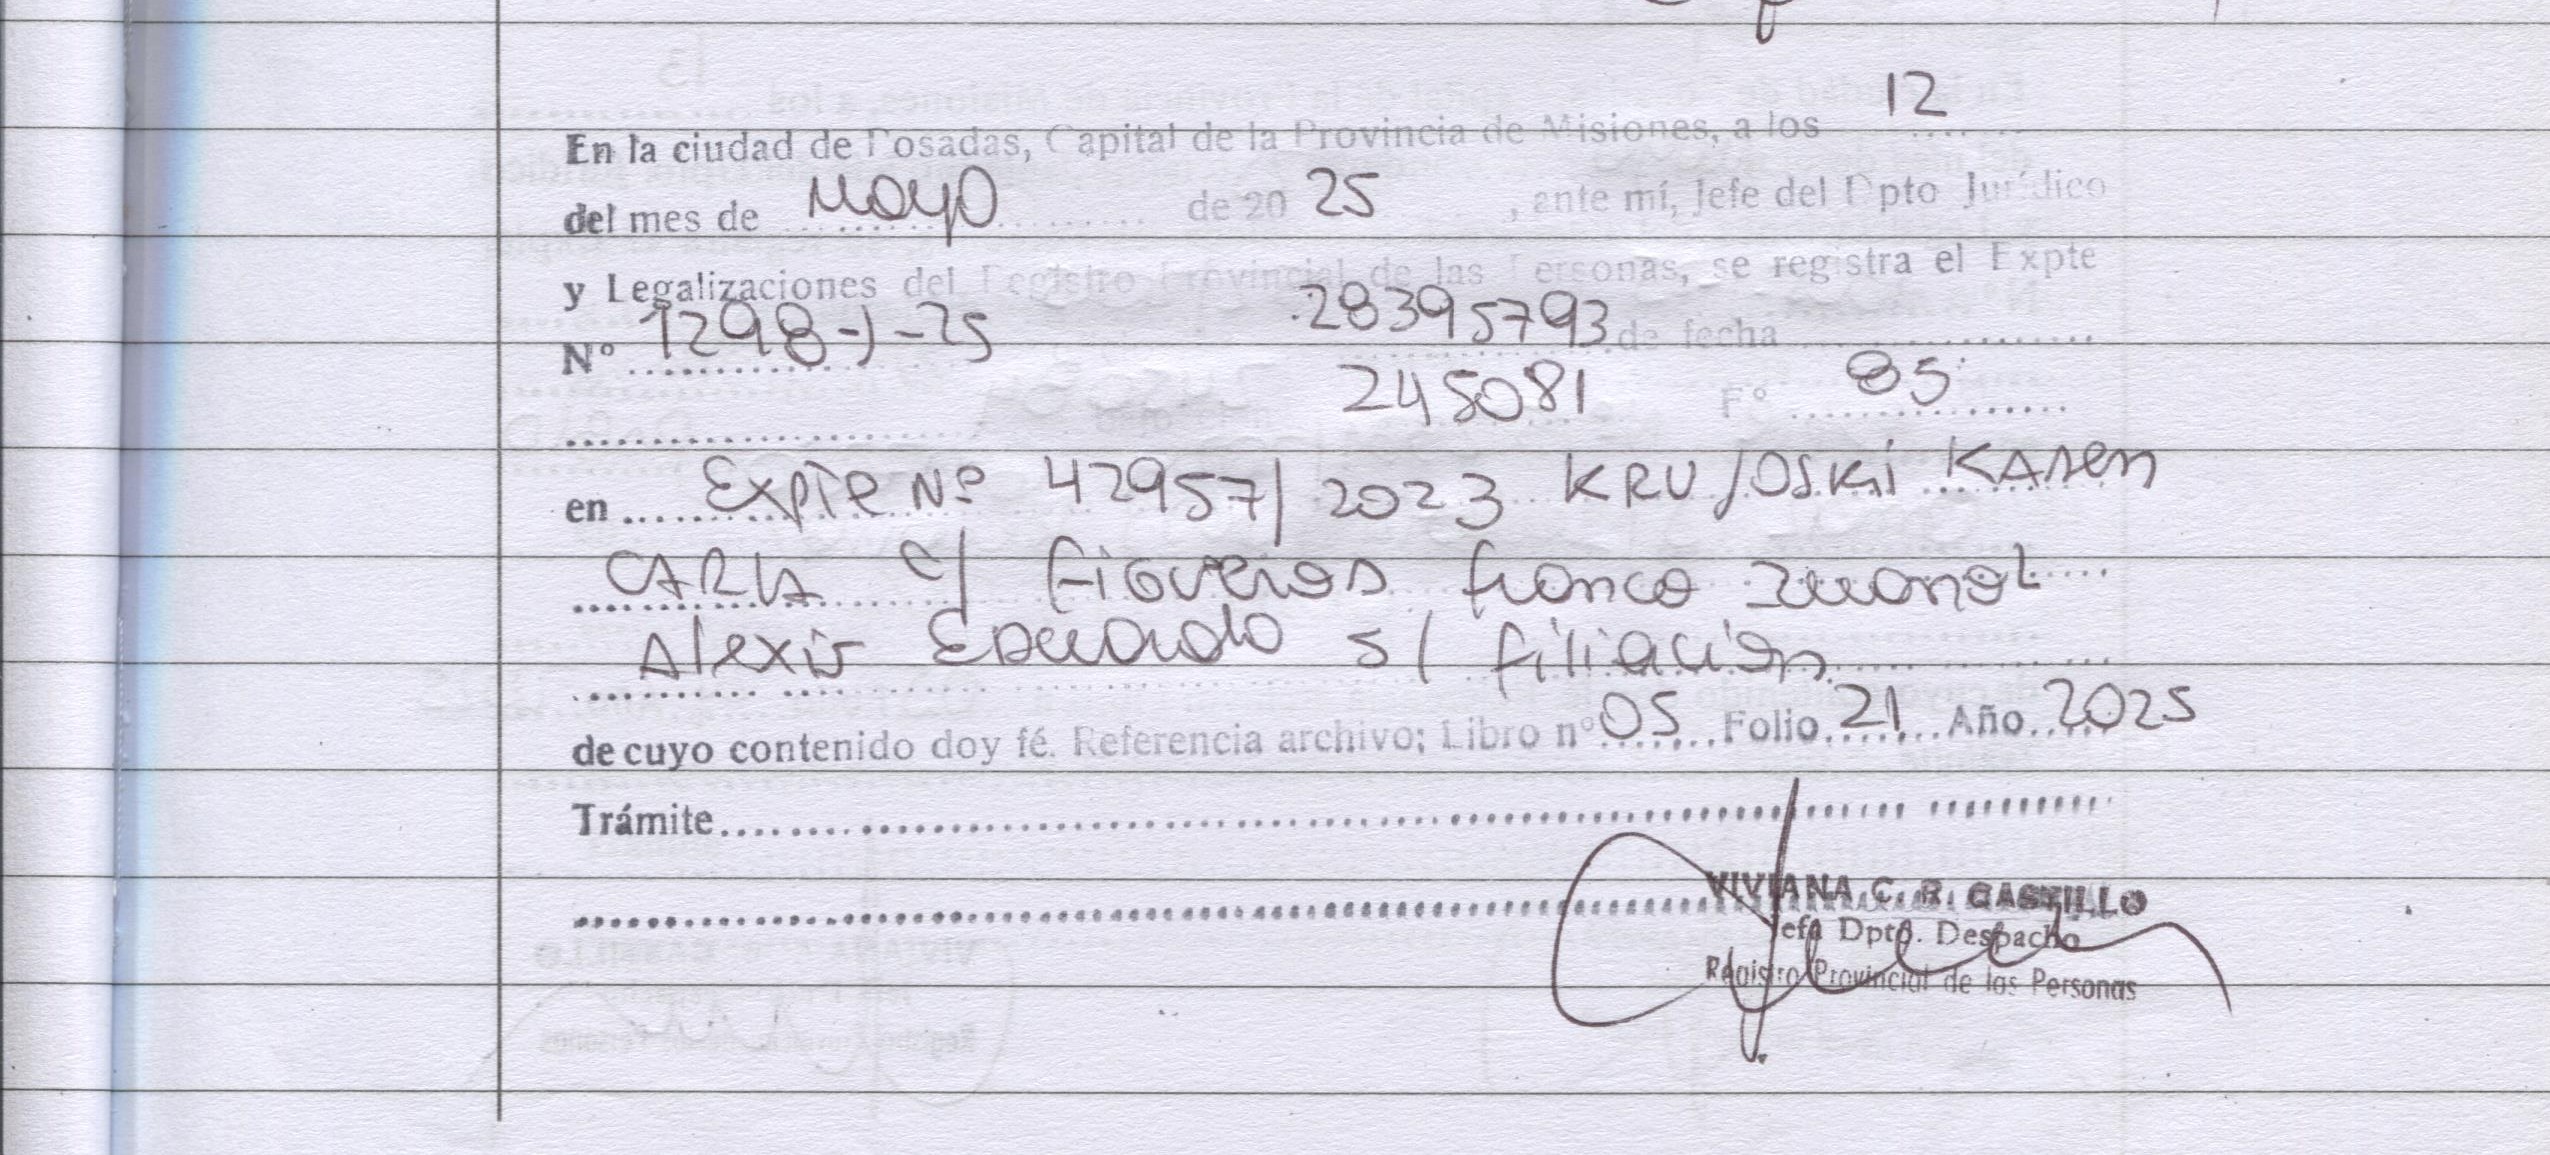 12
En la ciudad de Posadas, Capital de la Provincia de Misiones, a los
del mes de Mayo de 20 25, ante mí, Jefe del Dpto Jurídico
y Legalizaciones del Registro Provincial de las Personas, se registra el Expte
N° 1298-J-25 28395793 de fecha
245081 F° 85
en Expte Nº 42957/2023 KRUJOSKi KAREN
CARLA c/ Figueros franco
Alexis Eduardo s/ filiación
de cuyo contenido doy fé. Referencia archivo; Libro n° 05 Folio 21 Año 2025
Trámite
VIVIANA C. R. CASTILLO
Jefa Dpto. Despacho
Registro Provincial de las Personas